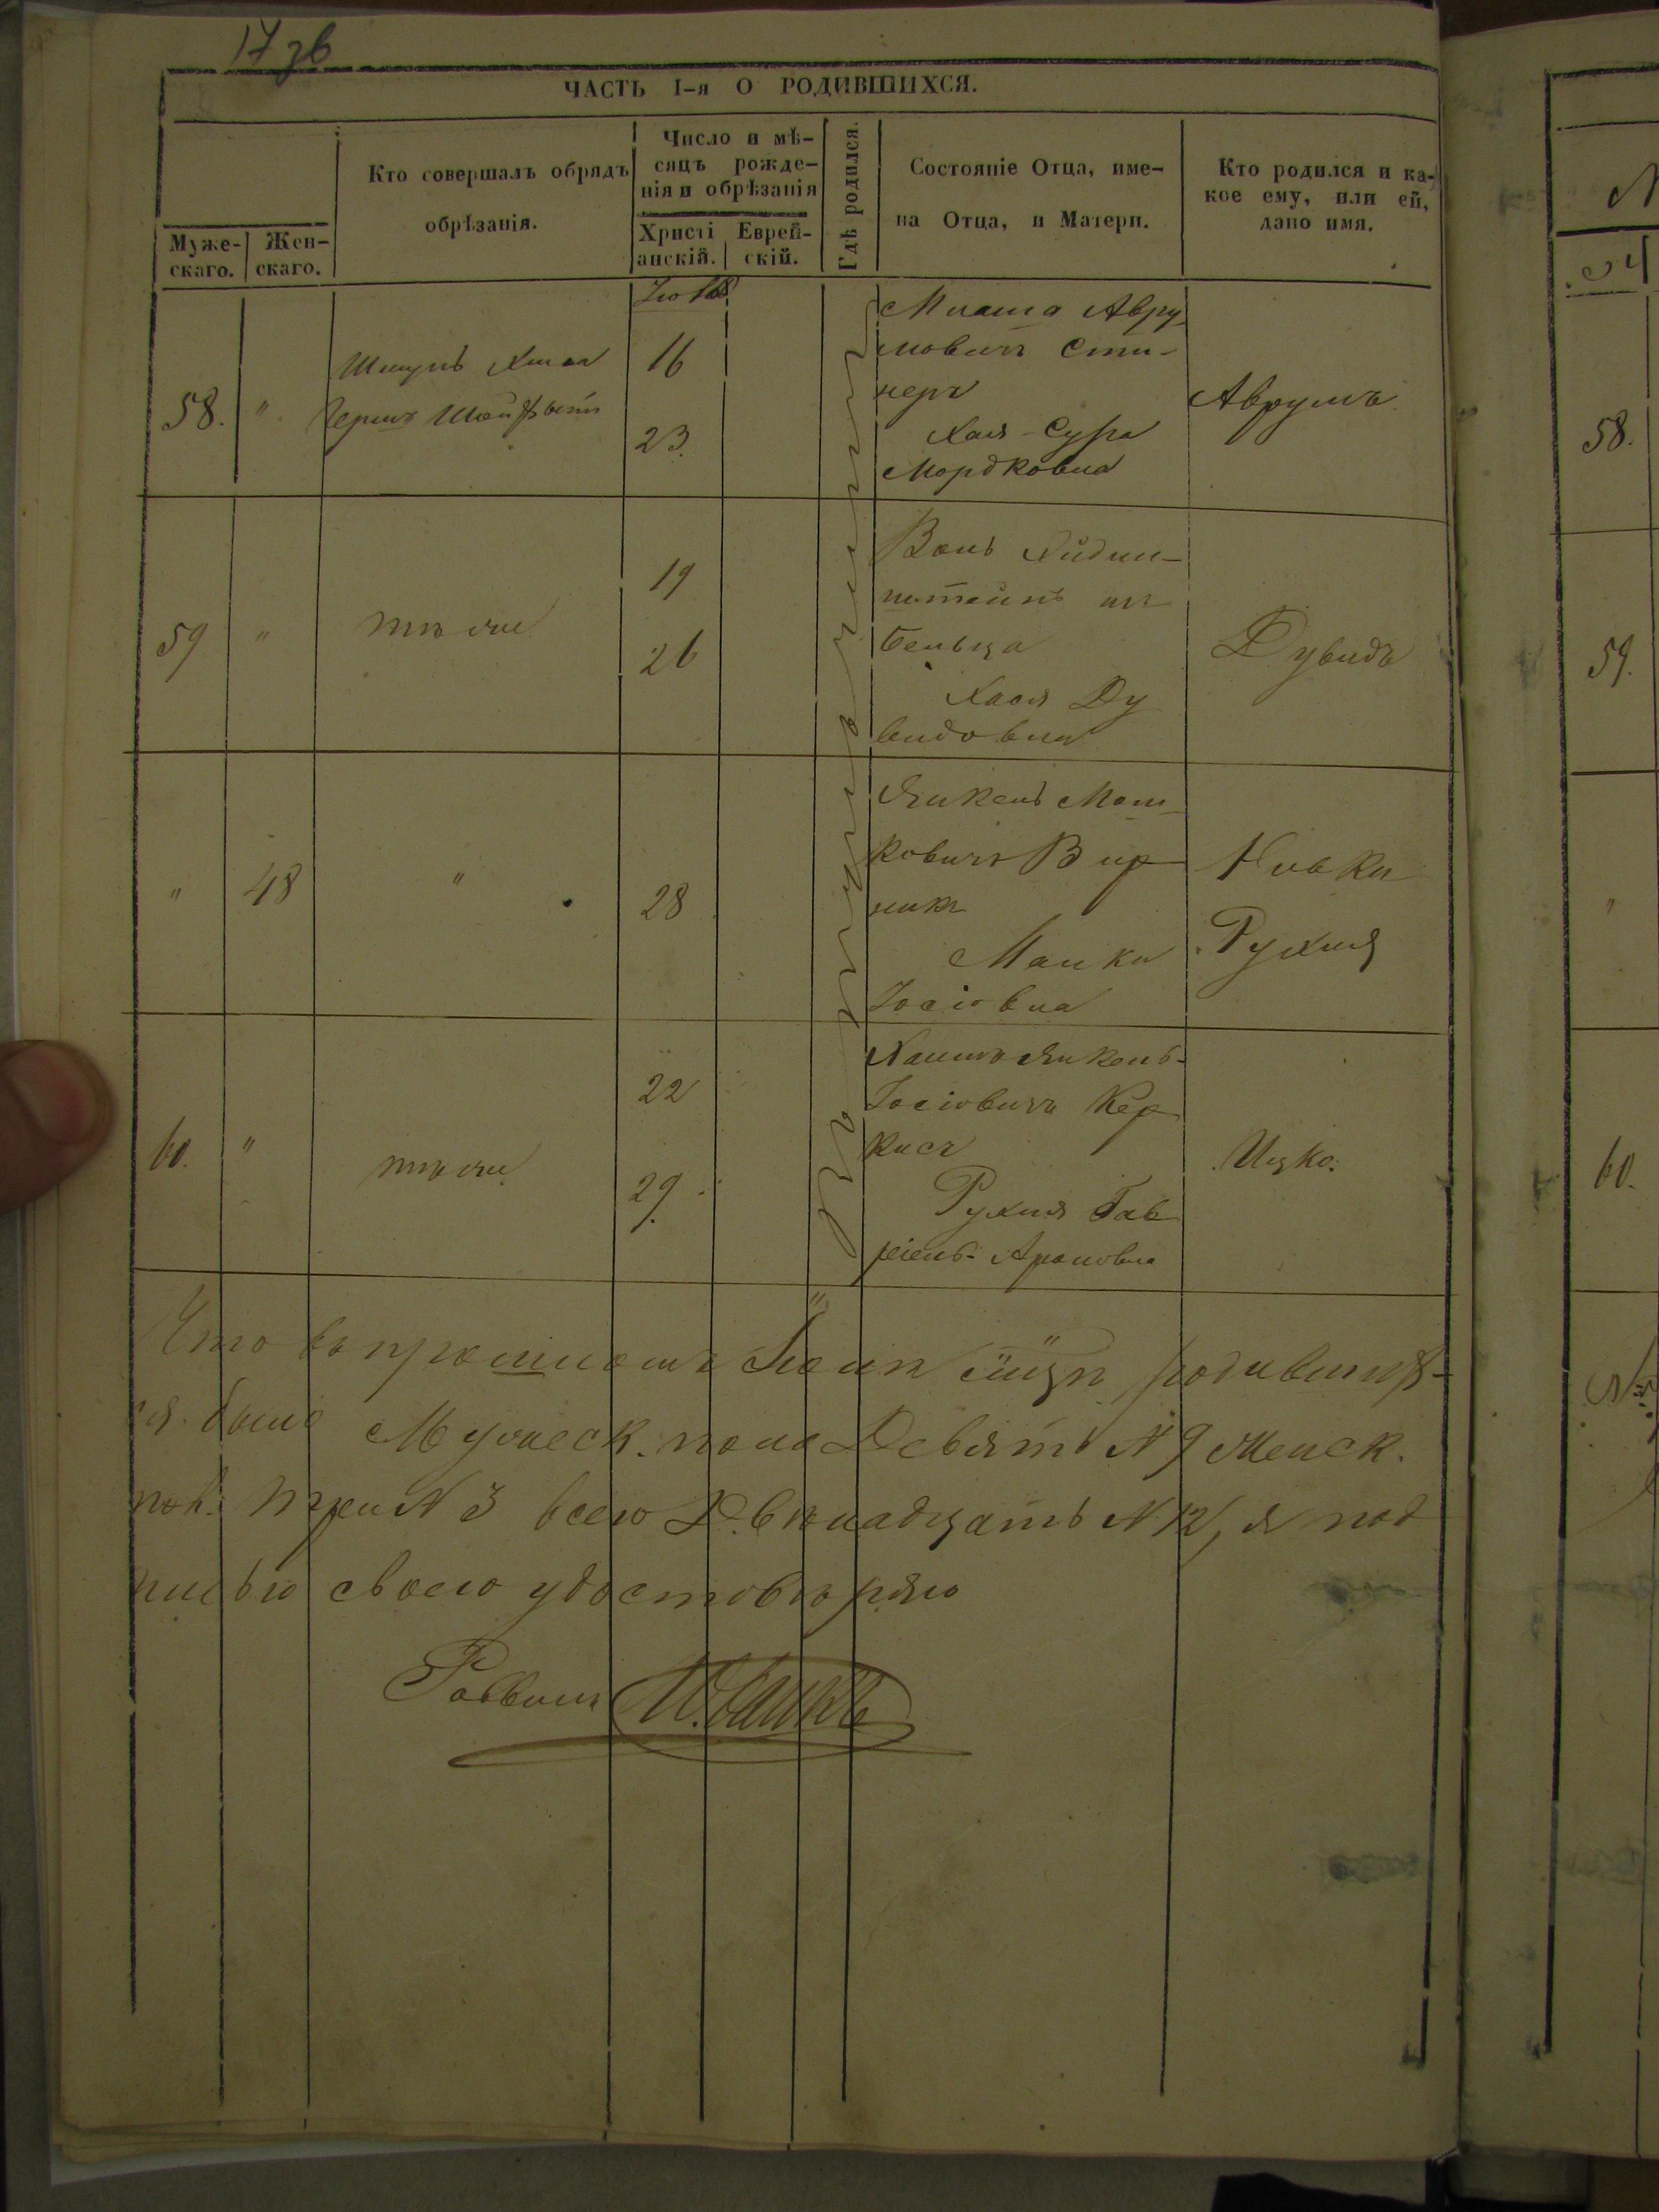 17 зв
ЧАСТЬ I-я О РОДИВШИХСЯ.
Муже-
скаго.
Жен-
скаго.
Кто совершалъ обрядъ
обрѣзанія.
Число и мѣ-
сяцъ рожде-
нія и обрѣзанія
Христі
анскій.
Еврей-
скій.
Гдѣ родился.
Состояніе Отца, име-
на Отца, и Матери.
Кто родился и ка-
кое ему, или ей,
дано имя.
58.
"
16
23.
Авру
мовичъ Сти-
неръ
Хая-Сура
Мордковна
Аврумъ
59
"
тѣ же
19
26
штейнъ изъ
Бельца
Хася Ду
видовна
Дувидъ
"
48
"
28
Янкель Мош
ковичъ Вир
никъ
Манка
Іосіовна
Ривка
Рухля
60.
"
тѣ же
22
29.
Хаимъ Янкель-
Іосіовичъ Кер
кисъ
Рухля Гав
ріель-Ароновна
Ицко.
Что въ прошломъ Іюлѣ мѣсяцѣ родивших-
ся было Мужеск. пола Девять N 9 Женск.
пол. три N 3 всего Двѣнадцать N 12, я под
писью своею удостовѣряю
Раввинъ
58.
59.
"
60.